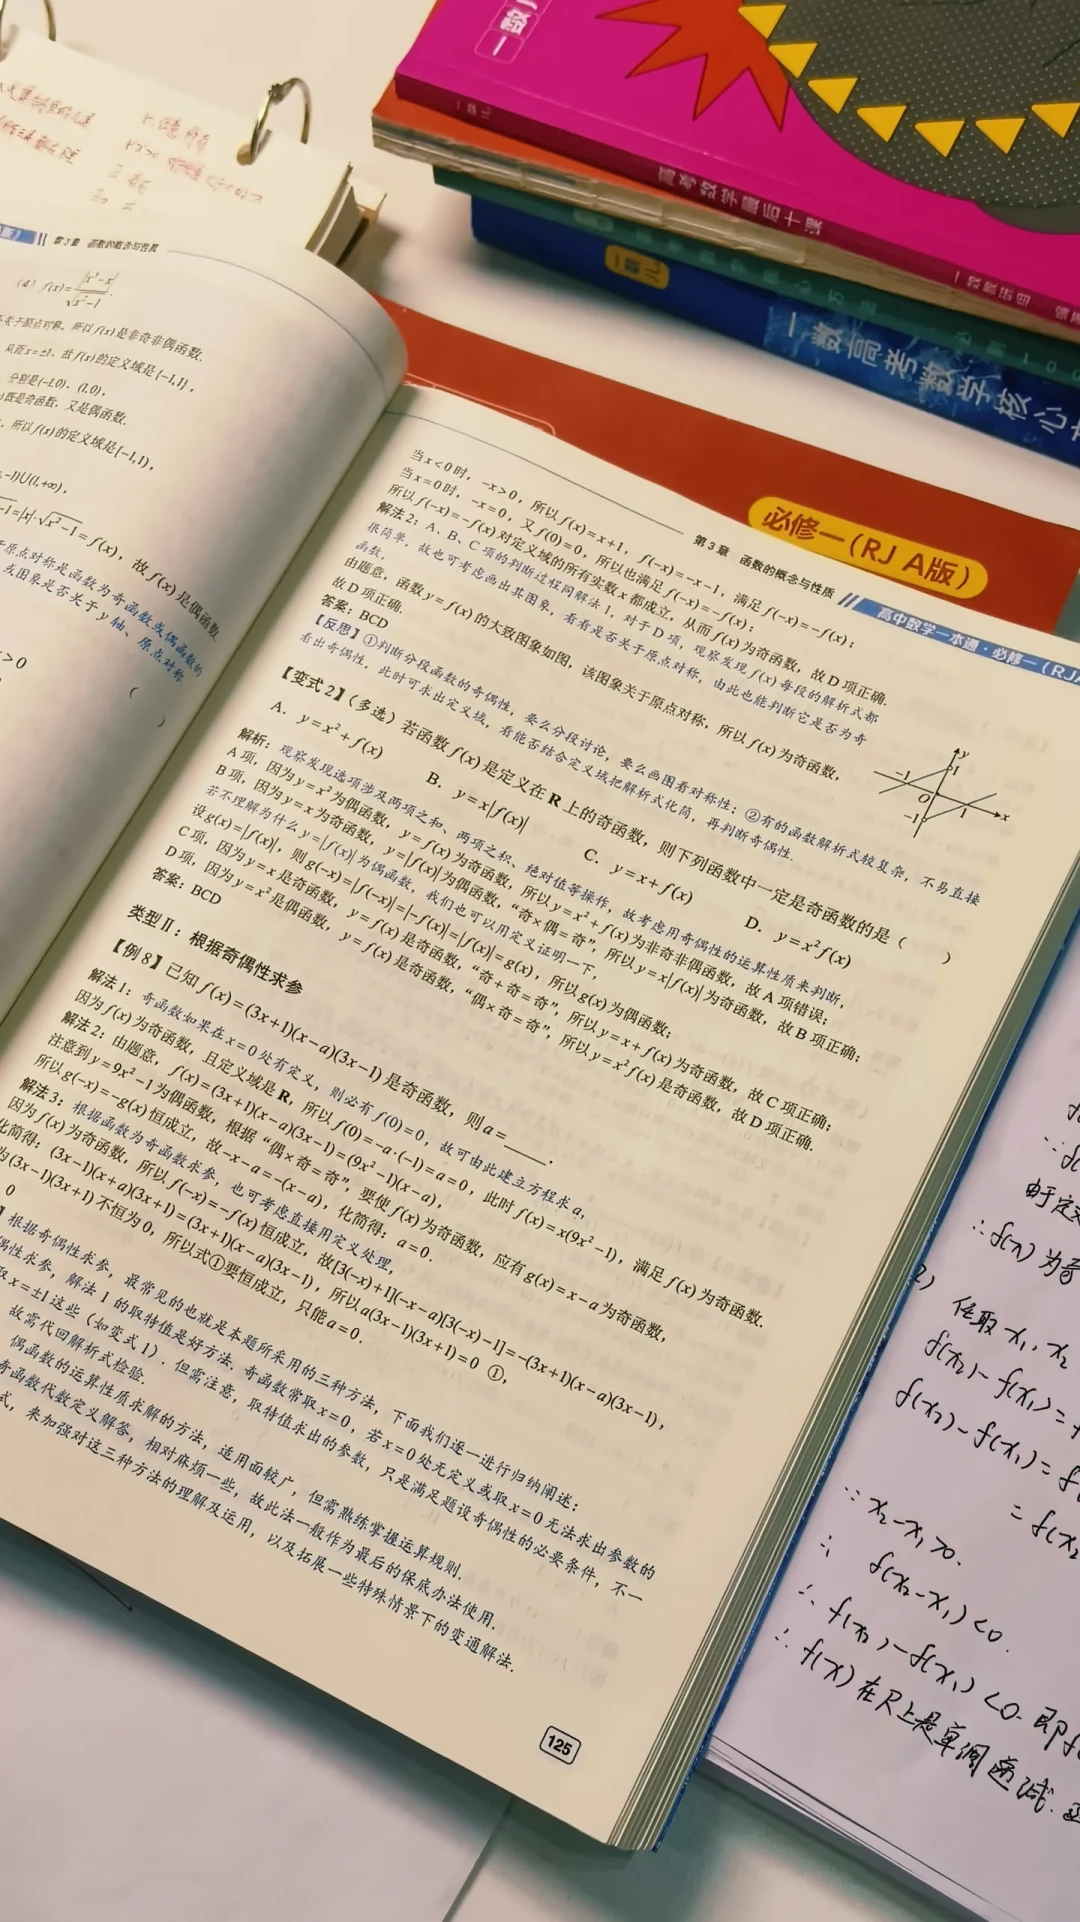 一数
一数儿
高考数学最后十课
一数教研组
一数儿
一数高考数学核心
必修一（RJ A版）
第3章 函数的概念与性质
(4) f(x)=|x³-x|/√x²-1.
原点对称，所以f(x)是非奇非偶函数.
从而x=±1，故f(x)的定义域是{-1,1}，
分别是(-1,0)，(1,0)，
既是奇函数，又是偶函数.
，所以f(x)的定义域是{-1,1}，
-1)∪(1,+∞)，
=|x|·√x²-1=f(x)，故f(x)是偶函数.
原点对称是函数为奇函数或偶函数的
或图象是否关于y轴、原点对称
>0
(
)
第3章 函数的概念与性质 高中数学一本通·必修一（RJ
当x<0时，-x>0，所以f(x)=x+1，f(-x)=-x-1，满足f(-x)=-f(x)；
当x=0时，-x=0，又f(0)=0，所以也满足f(-x)=-f(x)；
所以f(-x)=-f(x)对定义域的所有实数x都成立，从而f(x)为奇函数，故D项正确.
解法2：A、B、C项的判断过程同解法1，对于D项，观察发现f(x)每段的解析式都
很简单，故也可考虑画出其图象，看看是否关于原点对称，由此也能判断它是否为奇
函数，
由题意，函数y=f(x)的大致图象如图，该图象关于原点对称，所以f(x)为奇函数，
故D项正确.
答案：BCD
y
1
-1
O
1
x
-1
【反思】①判断分段函数的奇偶性，要么分段讨论，要么画图看对称性；②有的函数解析式较复杂，不易直接
看出奇偶性，此时可求出定义域，看能否结合定义域把解析式化简，再判断奇偶性.
【变式2】（多选）若函数f(x)是定义在R上的奇函数，则下列函数中一定是奇函数的是（ ）
A. y=x²+f(x) B. y=x|f(x)| C. y=x+f(x) D. y=x²f(x)
解析：观察发现选项涉及两项之和、两项之积、绝对值等操作，故考虑用奇偶性的运算性质来判断，
A项，因为y=x²为偶函数，y=f(x)为奇函数，所以y=x²+f(x)为非奇非偶函数，故A项错误；
B项，因为y=x为奇函数，y=|f(x)|为偶函数，“奇×偶=奇”，所以y=x|f(x)|为奇函数，故B项正确；
若不理解为什么y=|f(x)|为偶函数，我们也可以用定义证明一下，
设g(x)=|f(x)|，则g(-x)=|f(-x)|=|-f(x)|=|f(x)|=g(x)，所以g(x)为偶函数；
C项，因为y=x是奇函数，y=f(x)是奇函数，“奇+奇=奇”，所以y=x+f(x)为奇函数，故C项正确；
D项，因为y=x²是偶函数，y=f(x)是奇函数，“偶×奇=奇”，所以y=x²f(x)是奇函数，故D项正确.
答案：BCD
类型Ⅱ：根据奇偶性求参
【例8】已知f(x)=(3x+1)(x-a)(3x-1)是奇函数，则a=______.
解法1：奇函数如果在x=0处有定义，则必有f(0)=0，故可由此建立方程求a，
因为f(x)为奇函数，且定义域是R，所以f(0)=-a·(-1)=a=0，此时f(x)=x(9x²-1)，满足f(x)为奇函数.
解法2：由题意，f(x)=(3x+1)(x-a)(3x-1)=(9x²-1)(x-a)，
注意到y=9x²-1为偶函数，根据“偶×奇=奇”，要使f(x)为奇函数，应有g(x)=x-a为奇函数，
所以g(-x)=-g(x)恒成立，故-x-a=-(x-a)，化简得：a=0.
解法3：根据函数为奇函数求参，也可考虑直接用定义处理，
因为f(x)为奇函数，所以f(-x)=-f(x)恒成立，故[3(-x)+1](-x-a)[3(-x)-1]=-(3x+1)(x-a)(3x-1)，
化简得：(3x-1)(x+a)(3x+1)=(3x+1)(x-a)(3x-1)，所以a(3x-1)(3x+1)=0 ①，
为(3x-1)(3x+1)不恒为0，所以式①要恒成立，只能a=0.
0
】根据奇偶性求参，最常见的也就是本题所采用的三种方法，下面我们逐一进行归纳阐述：
偶性求参，解法1的取特值是好方法. 奇函数常取x=0，若x=0处无定义或取x=0无法求出参数的
取x=±1这些（如变式1）. 但需注意，取特值求出的参数，只是满足题设奇偶性的必要条件，不一
故需代回解析式检验.
偶函数的运算性质求解的方法，适用面较广，但需熟练掌握运算规则.
奇函数代数定义解答，相对麻烦一些，故此法一般作为最后的保底办法使用.
式，来加强对这三种方法的理解及运用，以及拓展一些特殊情景下的变通解法.
125
由于定义
∴f(x)为奇
2)
任取x₁，x₂
f(x₂)-f(x₁)=
f(x₂)-f(x₁)=f
=f(x₂
∵x₂-x₁>0.
∴ f(x₂-x₁)<0.
∴ f(x₂)-f(x₁)<0. 即f
∴ f(x)在R上是单调递减.